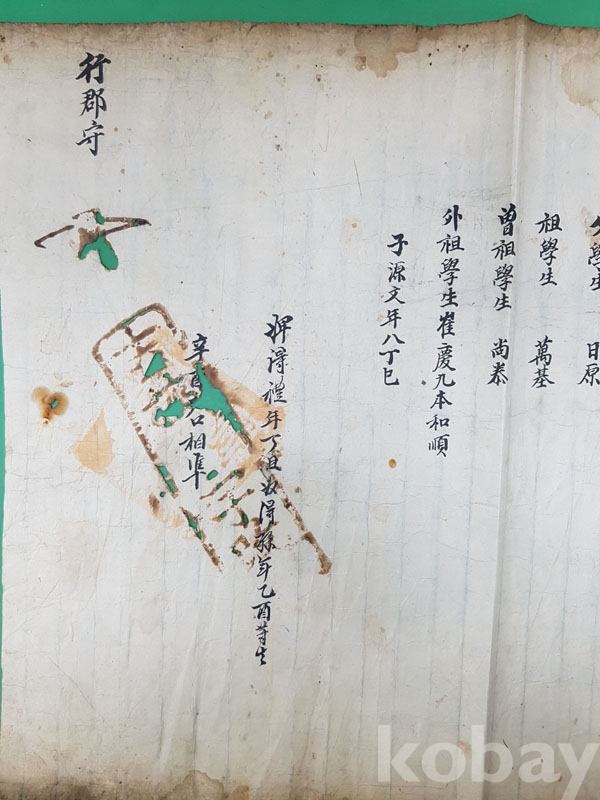 父學生 日原
祖學生 萬基
曾祖學生 尚泰
外祖學生崔慶九本和順
子源文年八丁巳
婢得禮年丁丑奴得孫年乙酉等生
辛酉戶口相準
行郡守
kobay